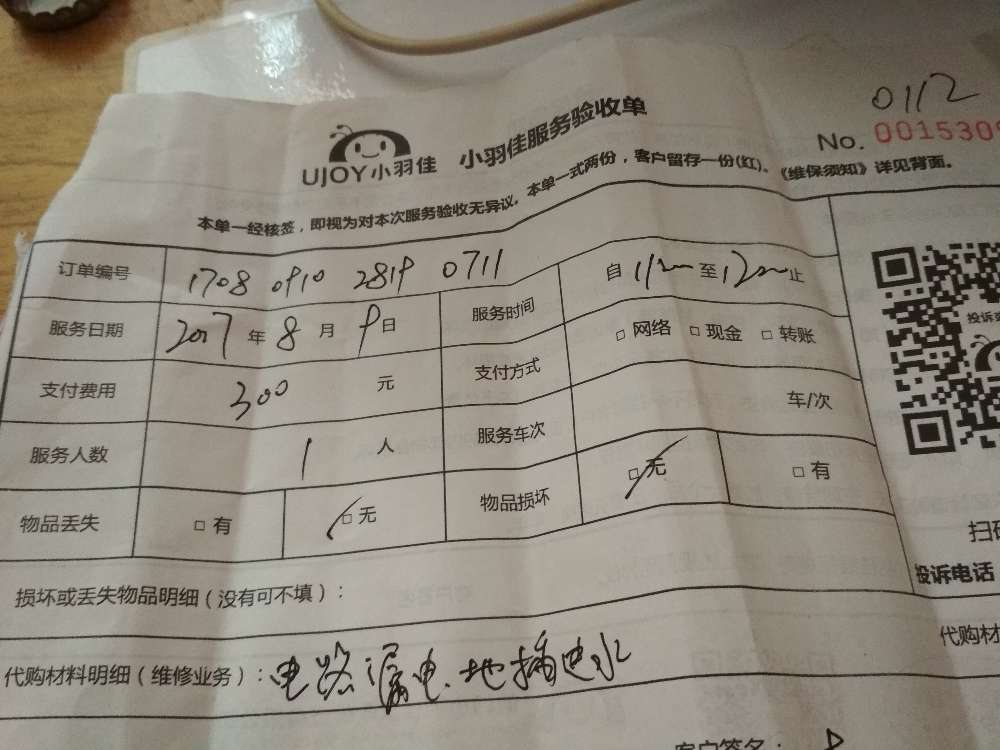 0112
No. 0015300
UJOY小羽佳 小羽佳服务验收单
本单一经核签，即视为对本次服务验收无异议，本单一式两份，客户留存一份(红)。《维保须知》详见背面。
订单编号 1708 0910 2819 0711
服务日期 2017年8月9日 服务时间 自11:00至12:00止
支付费用 300元 支付方式 □网络 □现金 □转账
服务人数 1人 服务车次 车/次
物品丢失 □有 □无 物品损坏 □无 □有
投诉
扫码
损坏或丢失物品明细（没有可不填）：
投诉电话
代购材料明细（维修业务）：电路漏电.地插进水
代购材
客户签名：